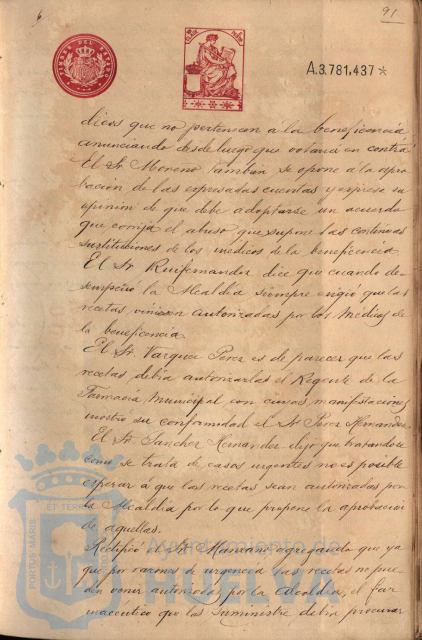 91
A.3.781,437*
dicos que no pertenecen á la beneficencia
anunciando desde luego que votará en contra
El Sr. Moreno tambien se opone á la apro-
bacion de las expresadas cuentas y expresa su
opinion de que debe adoptarse un acuerdo
que corrija el abuso que supone las continuas
sustituciones de los médicos de la beneficencia
El Sr. Ruifernandez dice que cuando de-
sempeñó la Alcaldia siempre exigió que las
recetas viniesen autorizadas por los Médicos de
la beneficencia.
El Sr. Vazquez Perez es de parecer que las
recetas debia autorizarlas el Regente de la
Farmacia Municipal con cuyas manifestaciones
mostró su conformidad el Sr. Perez Hernandez
El Sr. Sanchez Hernandez dijo que tratandose
como se trata de casos urgentes no es posible
esperar á que las recetas sean autorizadas por
la Alcaldia por lo que propone la aprobacion
de aquellas.
Rectificó el Sr. Manzano agregando que ya
que por razones de urgencia las recetas no pue-
den venir autorizadas por la Alcaldia, el far-
maceutico que las suministre debia procurar
Ayuntamiento de
HUELVA
PORTUS MARIS
ET TERRAE